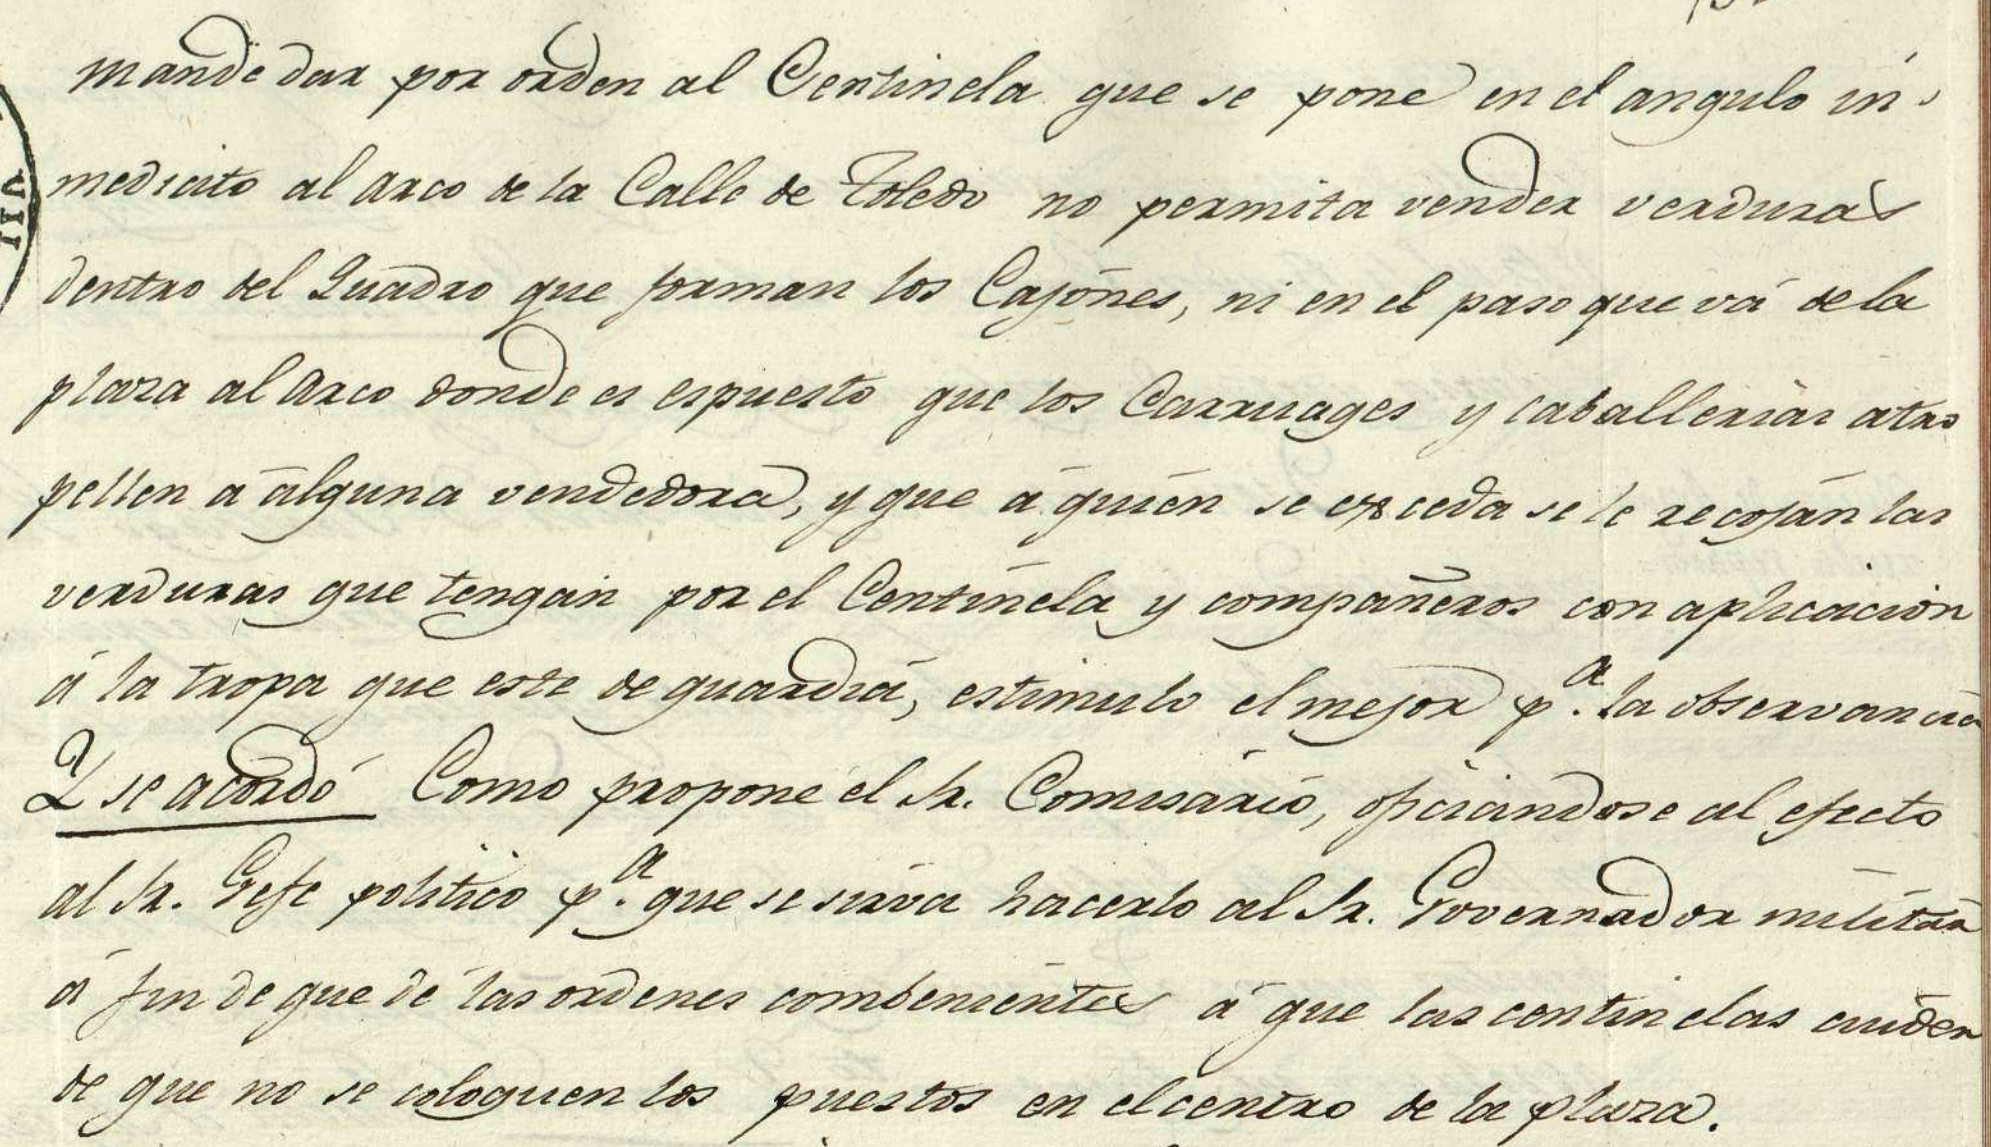 mande dar por orden al Centinela que se pone en el angulo in-
mediato al arco de la Calle de Toledo no permita vender verduras
dentro del Quadro que forman los Cajones, ni en el paso que vá de la
plaza al arco donde es espuesto que los Carruages y caballerias atro
pellen á alguna vendedora, y que á quien se exceda se le recojan las
verduras que tengan por el Centinela y compañeros con aplicacion
á la tropa que este de guardia, estimulo el mejor p.ª la observancia
Y se acordó Como propone el Sr. Comisario, oficiandose al efecto
al Sr. Gefe politico p.ª que se sirva hacerlo al Sr. Governador militar
á fin de que dé las ordenes combenientes á que las centinelas cuiden
de que no se coloquen los puestos en el centro de la plaza.